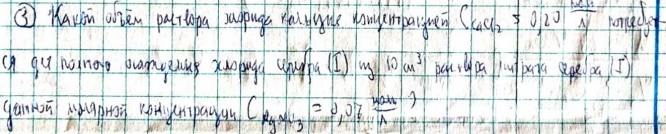 ③ Какой объём раствора хлорида кальция концентрацией C CaCl2 = 0,20 моль/л потребует
ся для полного осаждения хлорида серебра (I) из 10 см³ раствора нитрата серебра (I)
данной молярной концентрации C AgNO3 = 0,07 моль/л ?